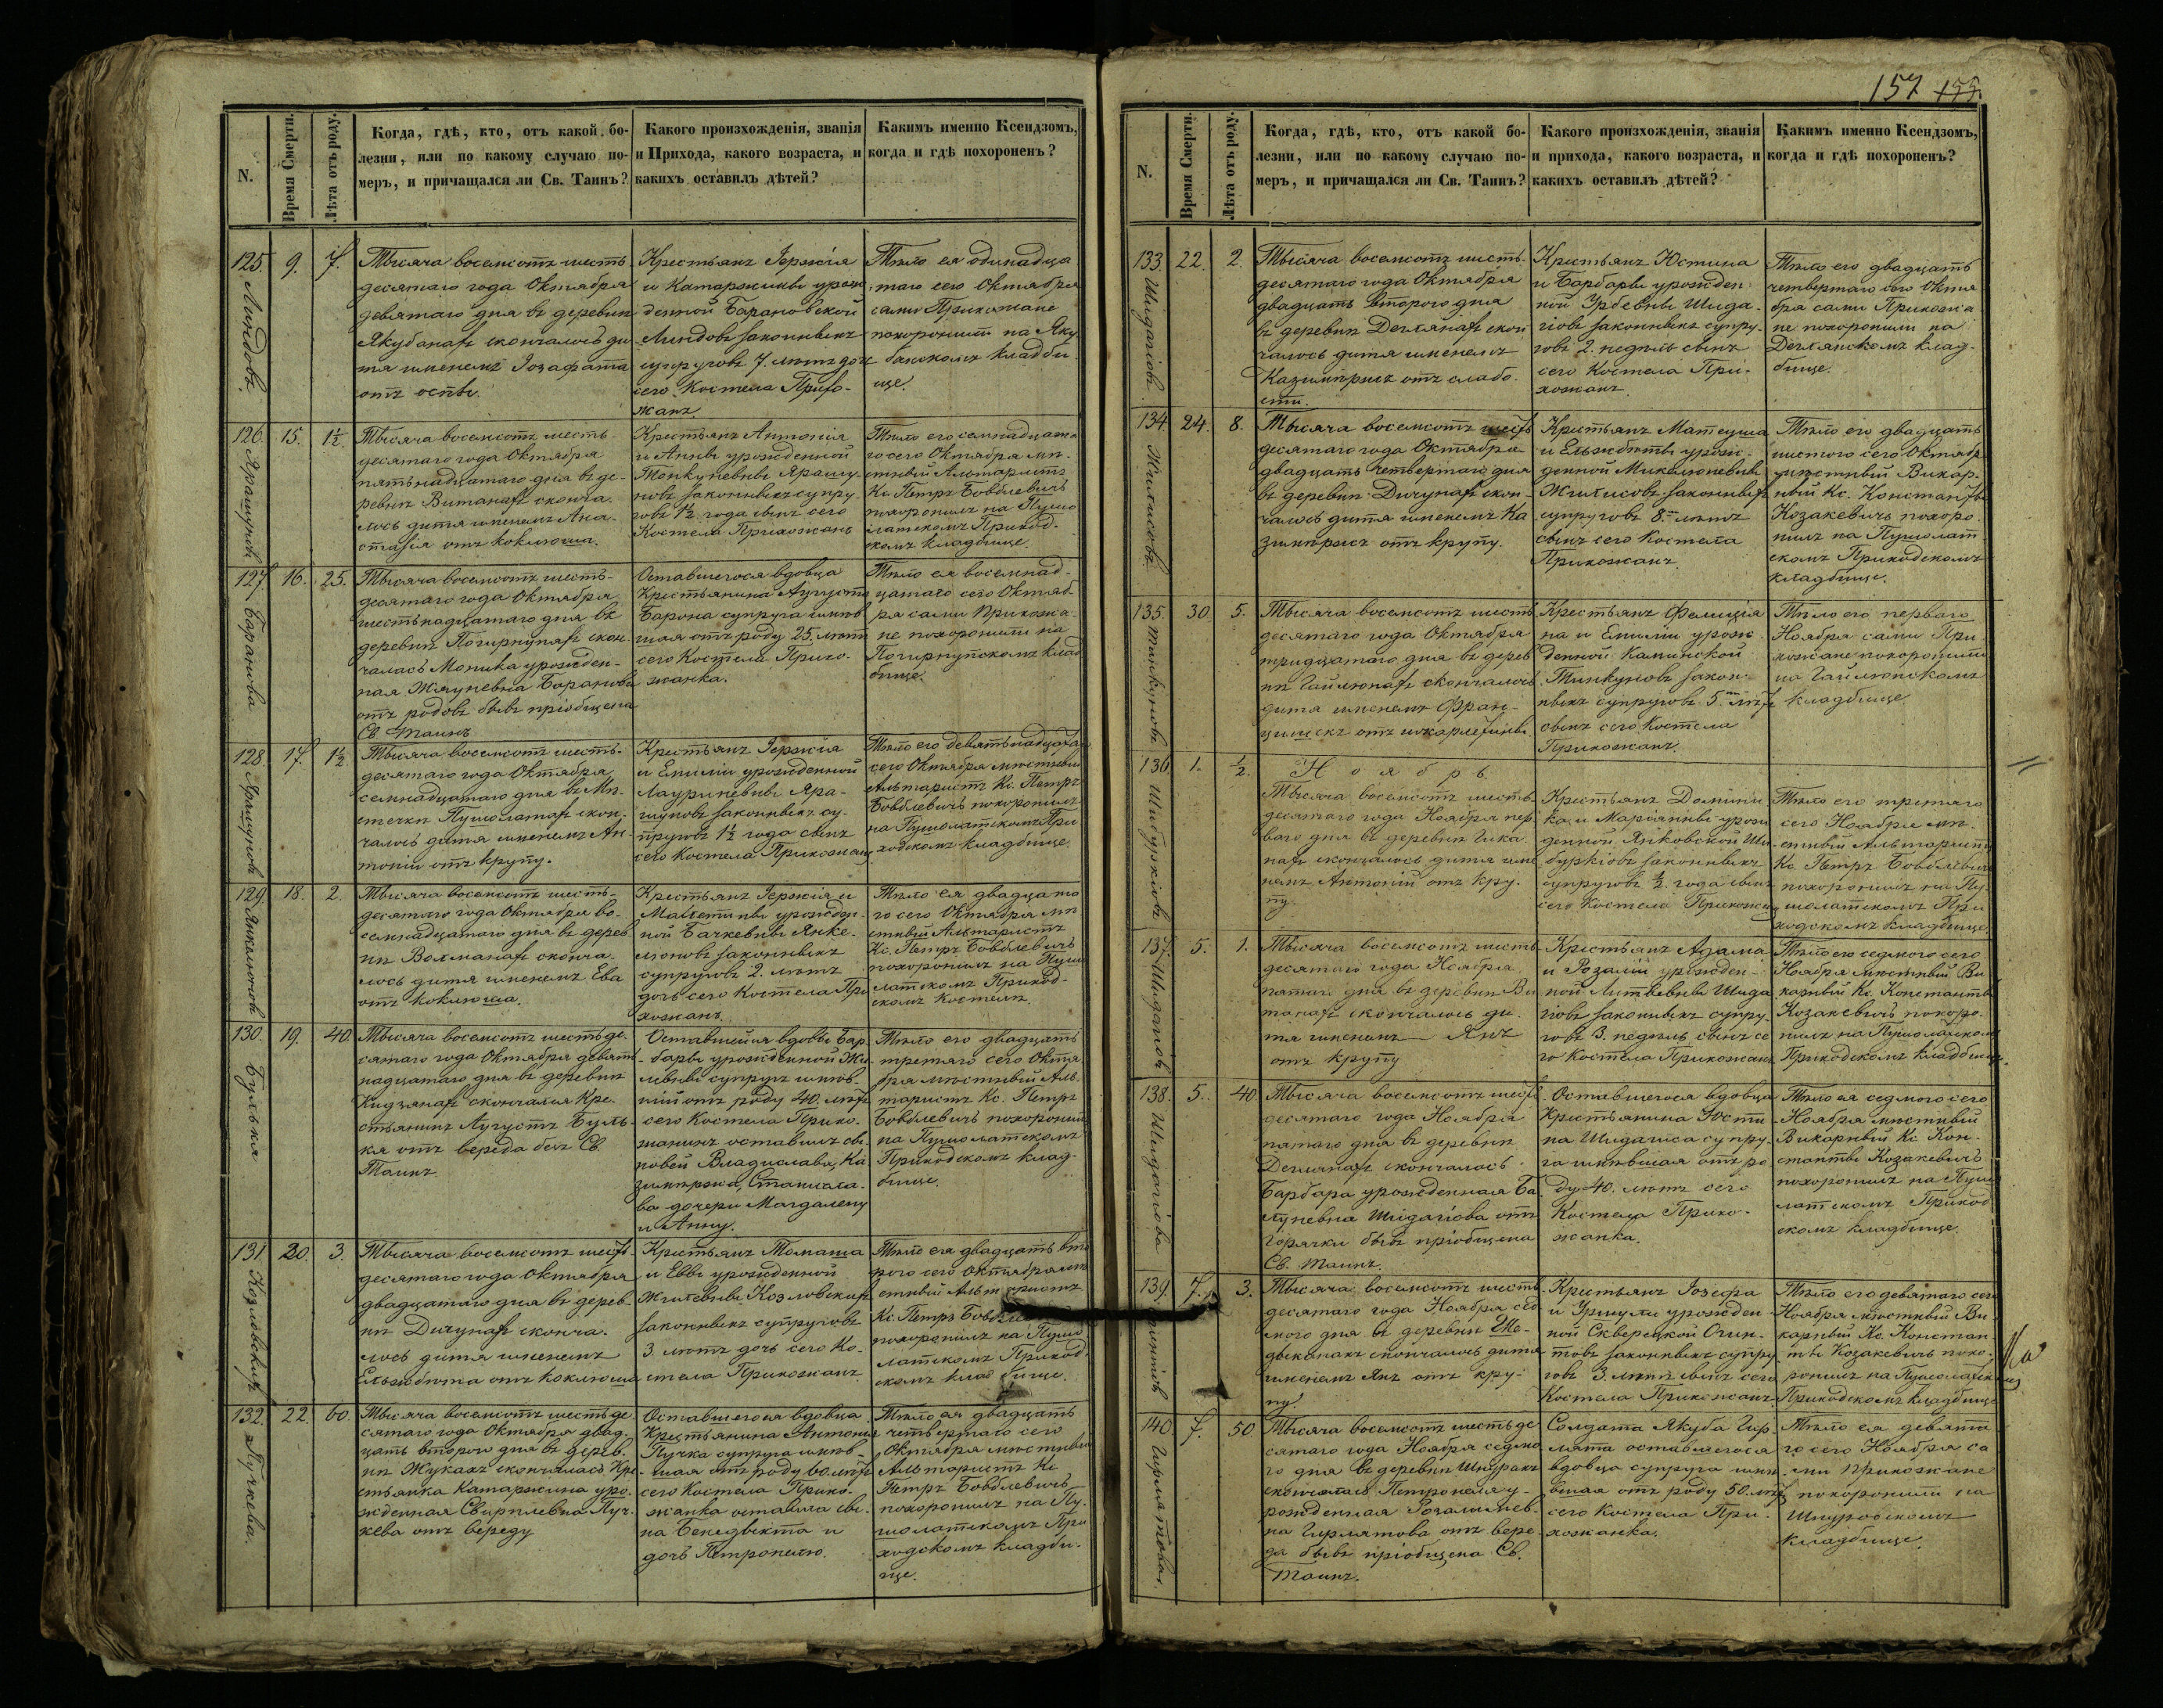 N.
Время Смерти.
Лѣта отъ роду.
Когда, гдѣ, кто, отъ какой бо-
лезни, или по какому случаю по-
меръ, и причащался ли Св. Таинъ?
Какого произхожденія, званія
и Прихода, какого возраста, и
какихъ оставилъ дѣтей?
Какимъ именно Ксендзомъ,
когда и гдѣ похороненъ?
125.
9.
7.
Тысяча восемсотъ шесть
десятаго года Октября
девятаго дня въ деревни
скончалось ди
тя именемъ Іозафата
отъ оспы
Крестьянъ Іержія
и Катаржины урож
денной Барановской
законныхъ
супруговъ 7. лѣтъ дочь
сего Костела Прихо-
жанъ
Тѣло ея одинадца
таго сего Октября
сами Прихожане
похоронили на Яку
банскомъ кладби
ще.
126.
15.
1½.
Тысяча восемсотъ шесть-
десятаго года Октября
пятьнадцатаго дня въ де-
ревни Витанахъ сконча-
лось дитя именемъ Ана-
стазія отъ коклюша.
Крестьянъ Антонія
и Анны урожденной
законныхъ супру-
говъ 1½ года сынъ сего
Костела Прихожанъ
Тѣло его семнадцата
го сего Октября мѣ-
стный Альтаристъ
Кс. Петръ Бовблевичъ
похоронилъ на Пушо
латскомъ Приход-
скомъ кладбище.
127
16.
25.
Тысяча восемсотъ шесть-
десятаго года Октября
шестьнадцатаго дня въ
деревни скон-
чалась Моника урожден-
ная Баранова
отъ родовъ бывъ пріобщена
Св. Таинъ
Оставшегося вдовца
Крестьянина Августы
Барона супруга имѣв
шая отъ роду 25. лѣтъ
сего Костела Прихо-
жанка.
Тѣло ея восемнад-
цатаго сего Октяб-
ря сами Прихожа-
не похоронили на
клад
бище.
128.
17.
1½
Тысяча восемсотъ шесть-
десятаго года Октября
семнадцатаго дня въ Мѣ-
стечки Пушолатахъ скон-
чалось дитя именемъ Ан-
тоній отъ крупу.
Крестьянъ Іержія
и Емиліи урожденной
Ярa-
шуновъ законныхъ су-
пруговъ 1½ года сынъ
сего Костела Прихожанъ
Тѣло его девятьнадцата
сего Октября мѣстный
Альтаристъ Кс. Петръ
Бовблевичъ похоронилъ
на Пушолатскомъ При
ходскомъ кладбище.
129.
18.
2.
Тысяча восемсотъ шесть-
десятаго года Октября во-
семнадцатаго дня въ дерев
ни сконча-
лось дитя именемъ Ева
отъ коклюша.
Крестьянъ Іержія и
урожден-
ной Янке-
люновъ законныхъ
супруговъ 2. лѣтъ
дочь сего Костела При
хожанъ.
Тѣло ея двадцата
го сего Октября мѣ
стный Альтаристъ
Кс. Петръ Бовблевичъ
похоронилъ на Пушо
латскомъ Приход-
скомъ Костелѣ.
130.
19.
40.
Тысяча восемсотъ шестьде-
сятаго года Октября девять
надцатаго дня въ деревни
скончался Кре-
стьянинъ Августъ Буль-
ка отъ вереда безъ Св.
Таинъ
Оставшейся вдовы Бар
бары урожденной
супругъ имѣв-
шій отъ роду 40. лѣтъ
сего Костела Прихо-
жанинъ оставилъ сы-
новей Владислава, Ка
зимержа, Станисла-
ва дочери Магдалену
и Анну.
Тѣло его двадцать
третяго сего Октя
бря мѣстный Аль-
таристъ Кс. Петръ
Бовблевичъ похоронилъ
на Пушолатскомъ
Приходскомъ клад-
бище.
131.
20.
3.
Тысяча восемсотъ шесть-
десятаго года Октября
двадцатаго дня въ дерев-
ни Дичунахъ сконча-
лось дитя именемъ
Ельжбѣта отъ коклюша
Крестьянъ Томаша
и Евы урожденной
Козловскихъ
законныхъ супруговъ
3. лѣтъ дочь сего Ко-
стела Прихожанъ
Тѣло ея двадцать вто
рого сего Октября мѣ
стный Альтаристъ
Кс. Петръ
похоронилъ на Пушо
латскомъ Приход-
скомъ кладбище.
132.
22.
60.
Тысяча восемсотъ шестьде-
сятаго года Октября двад-
цать второго дня въ дерев-
ни Жукахъ скончалась Кре
стьянка Катаржина уро-
жденная Пуч-
кева отъ вереду
Оставшегося вдовца
Крестьянина Антонія
Пучка супруга имѣв-
шая отъ роду 60. лѣтъ
сего Костела Прихо-
жанка оставила сы-
на Бенедыкта и
дочь Петронелю.
Тѣло ея двадцать
четвертаго сего
Октября мѣстный
Альтаристъ Кс
Петръ Бовблевичъ
похоронилъ на Пу-
шолатскомъ При
ходскомъ кладби-
ще.
157 155.
N.
Время Смерти.
Лѣта отъ роду.
Когда, гдѣ, кто, отъ какой бо-
лезни, или по какому случаю по-
меръ, и причащался ли Св. Таинъ?
Какого произхожденія, званія
и прихода, какого возраста, и
какихъ оставилъ дѣтей?
Какимъ именно Ксендзомъ,
когда и гдѣ похороненъ?
133.
22.
2.
Тысяча восемсотъ шесть-
десятаго года Октября
двадцать второго дня
въ деревни Деглянахъ скон
чалось дитя именемъ
Казимиръ отъ слабо-
сти.
Крестьянъ Юстина
и Барбары урожден
ной Урбевны Шида-
гіовъ законныхъ супру-
говъ 2. недѣль сынъ
сего Костела При-
хожанъ
Тѣло его двадцать
четвертаго сего Октя
бря сами Прихожа
не похоронили на
Деглянскомъ клад-
бище.
134.
24.
8.
Тысяча восемсотъ шесть
десятаго года Октября
двадцать четвертаго дня
въ деревни Дичунахъ скон-
чалось дитя именемъ Ка
зимиръ отъ крупу.
Крестьянъ Матеуша
и Ельжбѣты урож-
денной
законныхъ
супруговъ 8. лѣтъ
сынъ сего Костела
Прихожанъ
Тѣло его двадцать
шестого сего Октября
мѣстный Викар-
ный Кс. Константы
Козакевичъ похоро-
нилъ на Пушолат
скомъ Приходскомъ
кладбище.
135.
30.
5.
Тысяча восемсотъ шесть
десятаго года Октября
тридцатаго дня въ дерев
ни Гайлюнахъ скончалось
дитя именемъ Фран-
цишекъ отъ шкарлетины
Крестьянъ Фелиція
на и Емиліи урож
денной Каминской
Тинкуновъ закон-
ныхъ супруговъ 5. лѣтъ
сынъ сего Костела
Прихожанъ.
Тѣло его перваго
Ноября сами При
хожане похоронили
на Гайлюнскомъ
кладбище
136
1.
½.
Ноябрь.
Тысяча восемсотъ шесть-
десятаго года Ноября пер-
ваго дня въ деревни
скончалось дитя име
немъ Антоній отъ кру-
пу.
Крестьянъ Домини
ка и Маріянны урож
денной Янковской Ши
буркіовъ законныхъ
супруговъ ½ года сынъ
сего Костела Прихожанъ
Тѣло его третяго
сего Ноября мѣ-
стный Альтаристъ
Кс. Петръ Бовблевичъ
похоронилъ на Пу-
шолатскомъ При
ходскомъ кладбище.
137.
5.
1.
Тысяча восемсотъ шесть
десятаго года Ноября
пятаго дня въ деревни Ви
танахъ скончалось ди-
тя именемъ Янъ
отъ крупу
Крестьянъ Адама
и Розаліи урожден-
ной Шида
гіовъ законныхъ супру-
говъ 3. недѣль сынъ се
го Костела Прихожанъ
Тѣло его седмого сего
Ноября мѣстный Ви
карный Кс. Константы
Козакевичъ похоро-
нилъ на Пушолатском
Приходскомъ кладбище.
138.
5.
40.
Тысяча восемсотъ шесть
десятаго года Ноября
пятаго дня въ деревни
Деглянахъ скончалась
Барбара урожденная Ба
луневна Шидагіова отъ
горячки бывъ пріобщена
Св. Таинъ.
Оставшегося вдовца
Крестьянина Юсти
на Шидагиса супру-
га имѣвшая отъ ро
ду 40. лѣтъ сего
Костела Прихо-
жанка.
Тѣло ея седмого сего
Ноября мѣстный
Викарный Кс. Кон-
станты Козакевичъ
похоронилъ на Пушо
латскомъ Приход
скомъ кладбище.
139.
7.
3.
Тысяча восемсотъ шесть
десятаго года Ноября сед
мого дня въ деревни
скончалось дитя
именемъ Янъ отъ кру-
пу.
Крестьянъ Іозефа
и Уршули урожден
ной Скверецкой
законныхъ супру
говъ 3. лѣтъ сынъ сего
Костела Прихожанъ
Тѣло его девятаго сего
Ноября мѣстный Ви
карный Кс. Констан-
ты Козакевичъ похо-
ронилъ на Пушолатском
Приходскомъ кладбище
140
7.
50
Тысяча восемсотъ шестьде
сятаго года Ноября седмо
го дня въ деревни Шнурахъ
скончалась Петронеля у-
рожденная
на Гирлятова отъ вере-
да бывъ пріобщена Св.
Таинъ.
Солдата Якуба Гир-
лята оставшегося
вдовца супруга имѣ-
вшая отъ роду 50. лѣтъ
сего Костела При-
хожанка.
Тѣло ея девята
го сего Ноября са
ми Прихожане
похоронили на
Шнуровскомъ
кладбище.